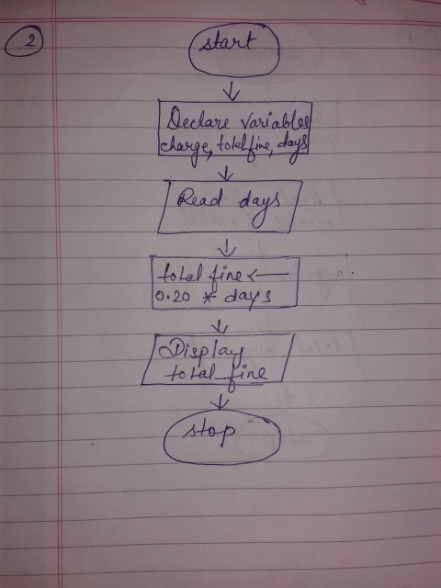 2
start
Declare variables
charge, totalfine, days
Read days
total fine ←
0.20 * days
Display
total_fine
stop